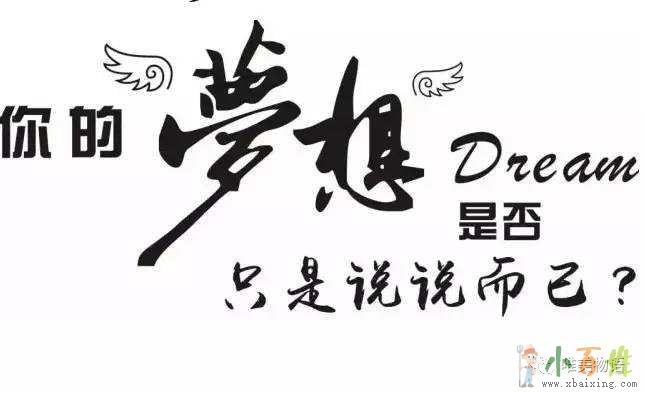 你的夢想 Dream
是否
只是说说而已？
小百姓
www.xbaixing.com